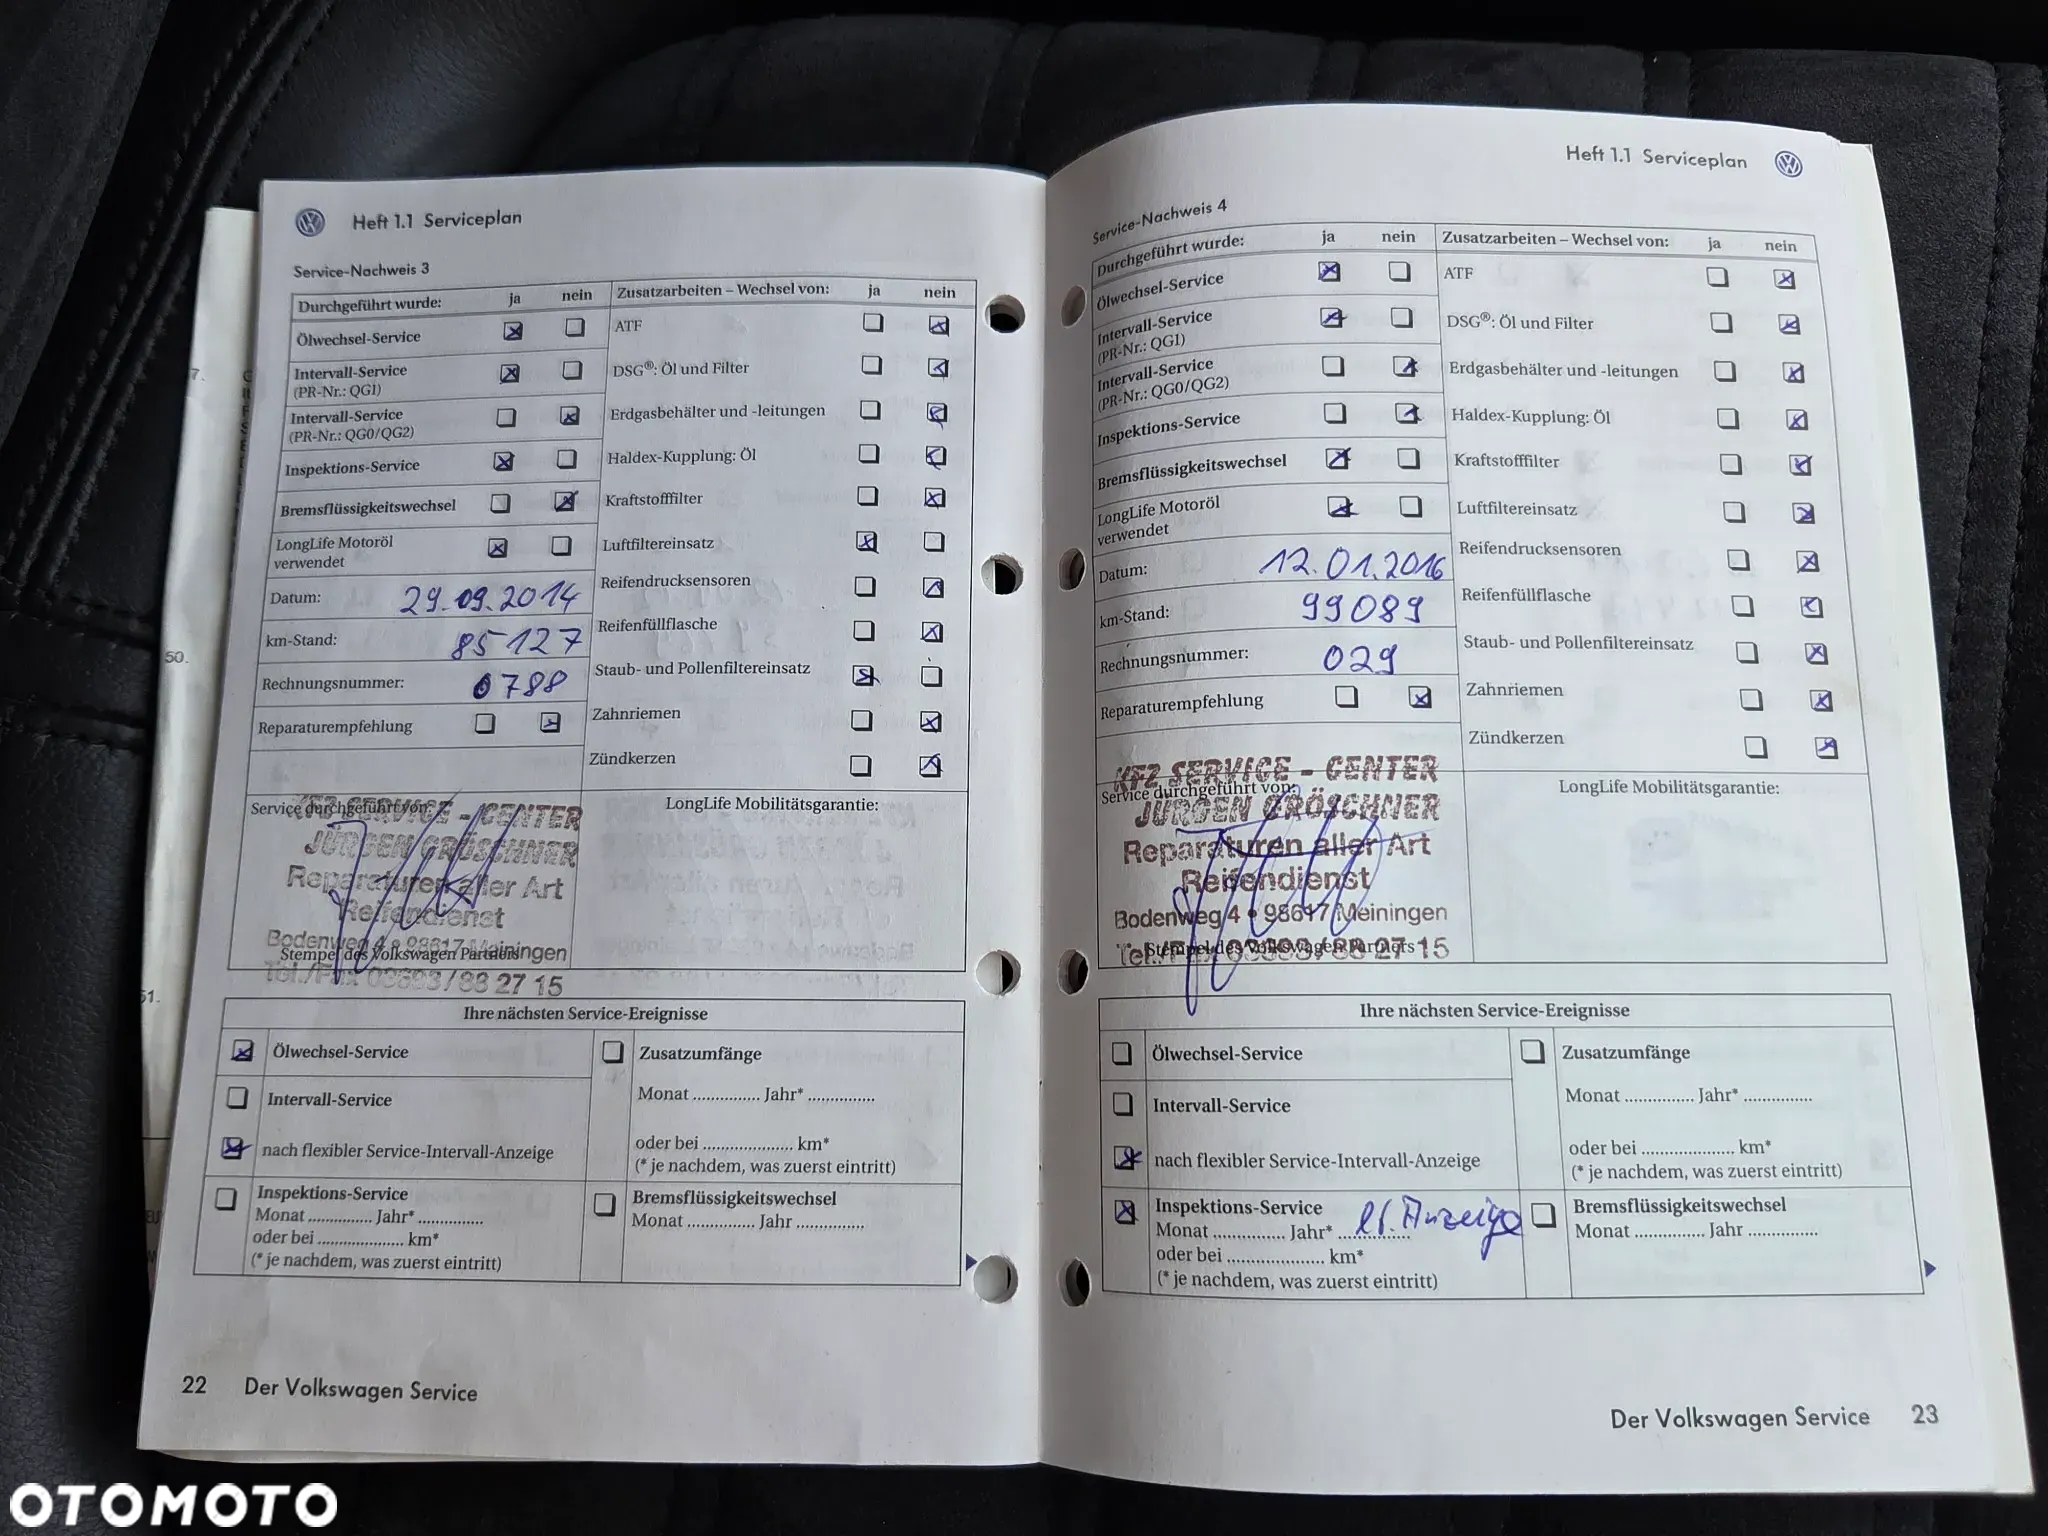 Heft 1.1 Serviceplan
Service-Nachweis 3
Durchgeführt wurde: ja nein
Zusatzarbeiten – Wechsel von: ja nein
Ölwechsel-Service
Intervall-Service
(PR-Nr.: QG1)
Intervall-Service
(PR-Nr.: QG0/QG2)
Inspektions-Service
Bremsflüssigkeitswechsel
LongLife Motoröl
verwendet
Datum: 29.09.2014
km-Stand: 85127
Rechnungsnummer: 0788
Reparaturempfehlung
ATF
DSG®: Öl und Filter
Erdgasbehälter und -leitungen
Haldex-Kupplung: Öl
Kraftstofffilter
Luftfiltereinsatz
Reifendrucksensoren
Reifenfüllflasche
Staub- und Pollenfiltereinsatz
Zahnriemen
Zündkerzen
Service durchgeführt von:
KFZ SERVICE - CENTER
JÜRGEN GRÖSCHNER
Reparaturen aller Art
Reifendienst
Bodenweg 4 • 98617 Meiningen
Stempel des Volkswagen Partners
Tel./Fax 03693/88 27 15
LongLife Mobilitätsgarantie:
Ihre nächsten Service-Ereignisse
Ölwechsel-Service
Intervall-Service
nach flexibler Service-Intervall-Anzeige
Inspektions-Service
Monat ............... Jahr* ...............
oder bei .................... km*
(* je nachdem, was zuerst eintritt)
Zusatzumfänge
Monat ............... Jahr* ...............
oder bei .................... km*
(* je nachdem, was zuerst eintritt)
Bremsflüssigkeitswechsel
Monat ............... Jahr ...............
22 Der Volkswagen Service
Heft 1.1 Serviceplan
Service-Nachweis 4
Durchgeführt wurde: ja nein
Zusatzarbeiten – Wechsel von: ja nein
Ölwechsel-Service
Intervall-Service
(PR-Nr.: QG1)
Intervall-Service
(PR-Nr.: QG0/QG2)
Inspektions-Service
Bremsflüssigkeitswechsel
LongLife Motoröl
verwendet
Datum: 12.01.2016
km-Stand: 99089
Rechnungsnummer: 029
Reparaturempfehlung
ATF
DSG®: Öl und Filter
Erdgasbehälter und -leitungen
Haldex-Kupplung: Öl
Kraftstofffilter
Luftfiltereinsatz
Reifendrucksensoren
Reifenfüllflasche
Staub- und Pollenfiltereinsatz
Zahnriemen
Zündkerzen
KFZ SERVICE - CENTER
Service durchgeführt von:
JÜRGEN GRÖSCHNER
Reparaturen aller Art
Reifendienst
Bodenweg 4 • 98617 Meiningen
Stempel des Volkswagen Partners
Tel./Fax 03693/88 27 15
LongLife Mobilitätsgarantie:
Ihre nächsten Service-Ereignisse
Ölwechsel-Service
Intervall-Service
nach flexibler Service-Intervall-Anzeige
Inspektions-Service
Monat ............... Jahr* ............... Anzeige
oder bei .................... km*
(* je nachdem, was zuerst eintritt)
Zusatzumfänge
Monat ............... Jahr* ...............
oder bei .................... km*
(* je nachdem, was zuerst eintritt)
Bremsflüssigkeitswechsel
Monat ............... Jahr ...............
Der Volkswagen Service 23
7.
50.
51.
OTOMOTO